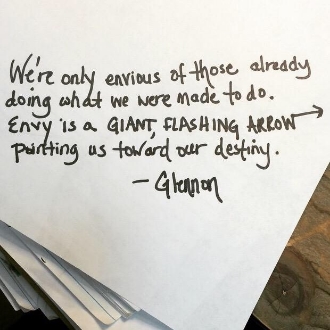 We're only envious of those already
doing what we were made to do.
Envy is a GIANT, FLASHING ARROW
pointing us toward our destiny.
- Glennon